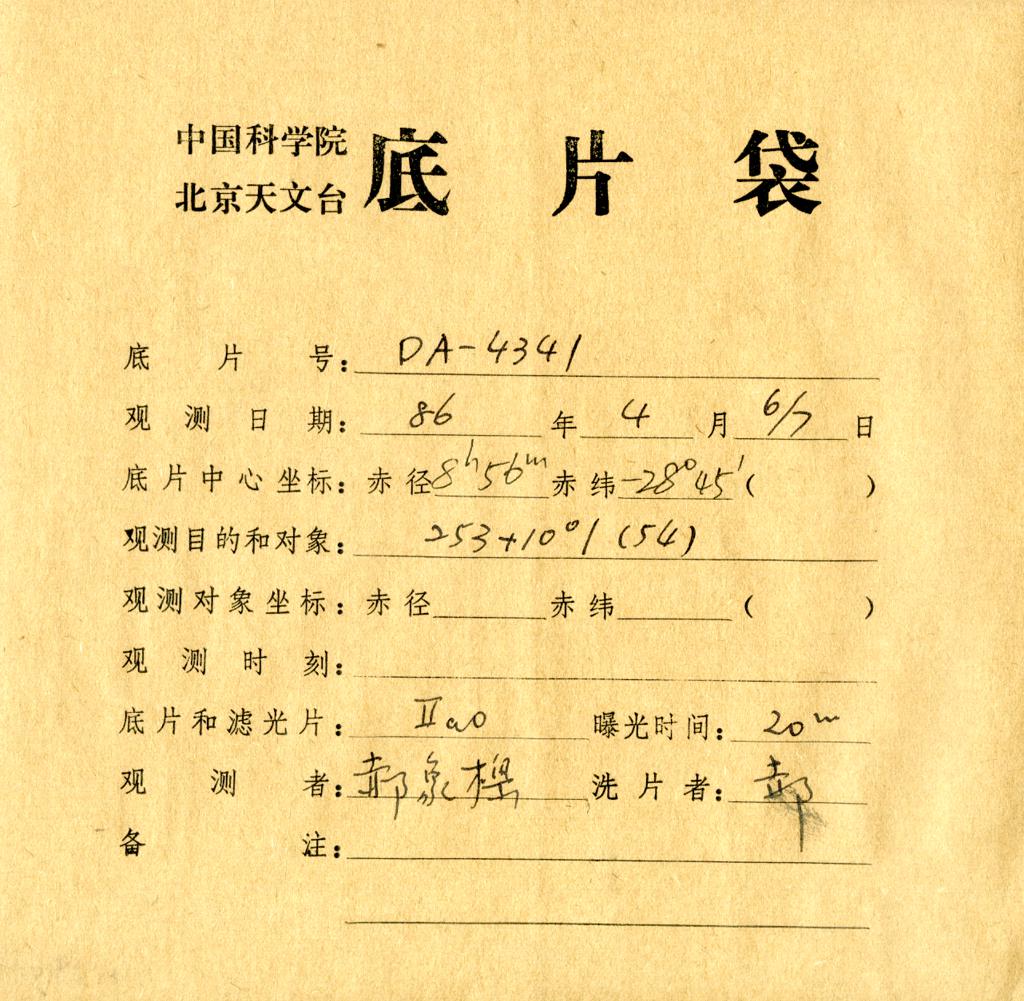 中国科学院
北京天文台 底片袋
底片号：DA-4341
观测日期：86年4月6/7日
底片中心坐标：赤径8h56m赤纬-28°45′( )
观测目的和对象：253+10°1 (54)
观测对象坐标：赤径 赤纬 ( )
观测时刻：
底片和滤光片：IIaO 曝光时间：20m
观测者：郝象樑 洗片者：郝
备注：